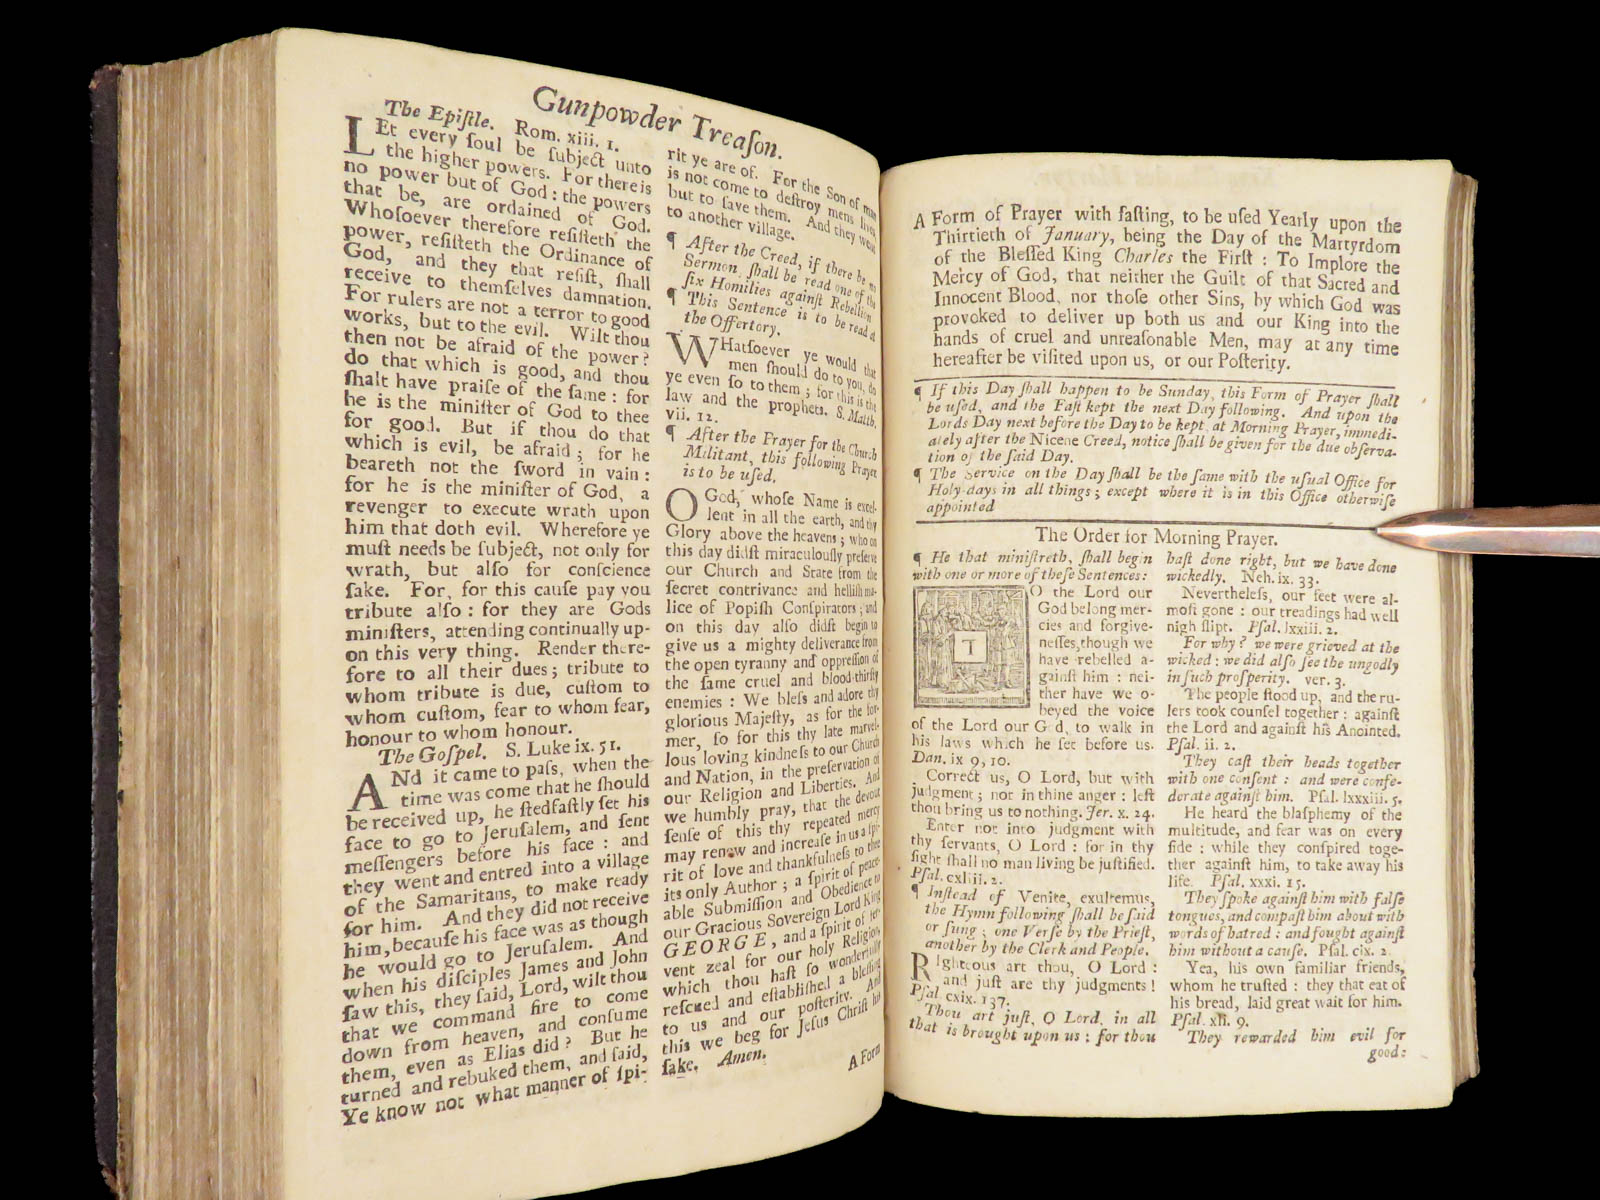 Gunpowder Treaſon.
The Epiſtle. Rom. xiii. 1.
LEt every ſoul be ſubject unto
the higher powers. For there is
no power but of God : the powers
that be, are ordained of God.
Whoſoever therefore reſiſteth the
power, reſiſteth the Ordinance of
God, and they that reſiſt, ſhall
receive to themſelves damnation.
For rulers are not a terror to good
works, but to the evil. Wilt thou
then not be afraid of the power?
do that which is good, and thou
ſhalt have praiſe of the ſame : for
he is the miniſter of God to thee
for good. But if thou do that
which is evil, be afraid ; for he
beareth not the ſword in vain :
for he is the miniſter of God, a
revenger to execute wrath upon
him that doth evil. Wherefore ye
muſt needs be ſubject, not only for
wrath, but alſo for conſcience
ſake. For, for this cauſe pay you
tribute alſo : for they are Gods
miniſters, attending continually up-
on this very thing. Render there-
fore to all their dues ; tribute to
whom tribute is due, cuſtom to
whom cuſtom, fear to whom fear,
honour to whom honour.
The Goſpel. S. Luke ix. 51.
ANd it came to paſs, when the
time was come that he ſhould
be received up, he ſtedfaſtly ſet his
face to go to Jeruſalem, and ſent
meſſengers before his face : and
they went and entred into a village
of the Samaritans, to make ready
for him. And they did not receive
him, becauſe his face was as though
he would go to Jeruſalem. And
when his diſciples James and John
ſaw this, they ſaid, Lord, wilt thou
that we command fire to come
down from heaven, and conſume
them, even as Elias did? But he
turned and rebuked them, and ſaid,
Ye know not what manner of ſpi-
rit ye are of. For the Son of man
is not come to deſtroy mens lives,
but to ſave them. And they went
to another village.
¶ After the Creed, if there be no
Sermon, ſhall be read one of the
ſix Homilies againſt Rebellion.
¶ This Sentence is to be read at
the Offertory.
WHatſoever ye would that
men ſhould do to you, do
ye even ſo to them ; for this is the
law and the prophets. S. Matth.
vii. 12.
¶ After the Prayer for the Church
Militant, this following Prayer
is to be uſed.
O God, whoſe Name is excel-
lent in all the earth, and thy
Glory above the heavens ; who on
this day didſt miraculouſly preſerve
our Church and State from the
ſecret contrivance and helliſh ma-
lice of Popiſh Conſpirators ; and
on this day alſo didſt begin to
give us a mighty deliverance from
the open tyranny and oppreſſion of
the ſame cruel and blood-thirſty
enemies : We bleſs and adore thy
glorious Majeſty, as for the for-
mer, ſo for this thy late marvel-
lous loving kindneſs to our Church
and Nation, in the preſervation of
our Religion and Liberties. And
we humbly pray, that the devout
ſenſe of this thy repeated mercy
may renew and increaſe in us a ſpi-
rit of love and thankfulneſs to thee
its only Author ; a ſpirit of peace-
able Submiſſion and Obedience to
our Gracious Sovereign Lord King
GEORGE, and a ſpirit of fer-
vent zeal for our holy Religion,
which thou haſt ſo wonderfully
reſcued and eſtabliſhed a bleſſing
to us and our poſterity. And
this we beg for Jeſus Chriſt his
ſake. Amen.
A Form
A Form of Prayer with faſting, to be uſed Yearly upon the
Thirtieth of January, being the Day of the Martyrdom
of the Bleſſed King Charles the Firſt : To Implore the
Mercy of God, that neither the Guilt of that Sacred and
Innocent Blood, nor thoſe other Sins, by which God was
provoked to deliver up both us and our King into the
hands of cruel and unreaſonable Men, may at any time
hereafter be viſited upon us, or our Poſterity.
¶ If this Day ſhall happen to be Sunday, this Form of Prayer ſhall
be uſed, and the Faſt kept the next Day following. And upon the
Lords Day next before the Day to be kept, at Morning Prayer, immedi-
ately after the Nicene Creed, notice ſhall be given for the due obſerva-
tion of the ſaid Day.
¶ The Service on the Day ſhall be the ſame with the uſual Office for
Holy-days in all things ; except where it is in this Office otherwiſe
appointed
The Order for Morning Prayer.
¶ He that miniſtreth, ſhall begin
with one or more of theſe Sentences:
TO the Lord our
God belong mer-
cies and forgive-
neſſes, though we
have rebelled a-
gainſt him : nei-
ther have we o-
beyed the voice
of the Lord our G d, to walk in
his laws which he ſet before us.
Dan. ix 9, 10.
Correct us, O Lord, but with
judgment ; not in thine anger : leſt
thou bring us to nothing. Jer. x. 24.
Enter not into judgment with
thy ſervants, O Lord : for in thy
ſight ſhall no man living be juſtified.
Pſal. cxliii. 2.
¶ Inſtead of Venite, exultemus,
the Hymn following ſhall be ſaid
or ſung ; one Verſe by the Prieſt,
another by the Clerk and People.
RIghteous art thou, O Lord :
and juſt are thy judgments!
Pſal. cxix. 137.
Thou art juſt, O Lord, in all
that is brought upon us : for thou
haſt done right, but we have done
wickedly. Neh. ix. 33.
Nevertheleſs, our feet were al-
moſt gone : our treadings had well
nigh ſlipt. Pſal. lxxiii. 2.
For why? we were grieved at the
wicked : we did alſo ſee the ungodly
in ſuch proſperity. ver. 3.
The people ſtood up, and the ru-
lers took counſel together : againſt
the Lord and againſt his Anointed.
Pſal. ii. 2.
They caſt their heads together
with one conſent : and were confe-
derate againſt him. Pſal. lxxxiii. 5.
He heard the blaſphemy of the
multitude, and fear was on every
ſide : while they conſpired toge-
ther againſt him, to take away his
life. Pſal. xxxi. 15.
They ſpoke againſt him with falſe
tongues, and compaſt him about with
words of hatred : and fought againſt
him without a cauſe. Pſal. cix. 2.
Yea, his own familiar friends,
whom he truſted : they that eat of
his bread, laid great wait for him.
Pſal. xli. 9.
They rewarded him evil for
good: